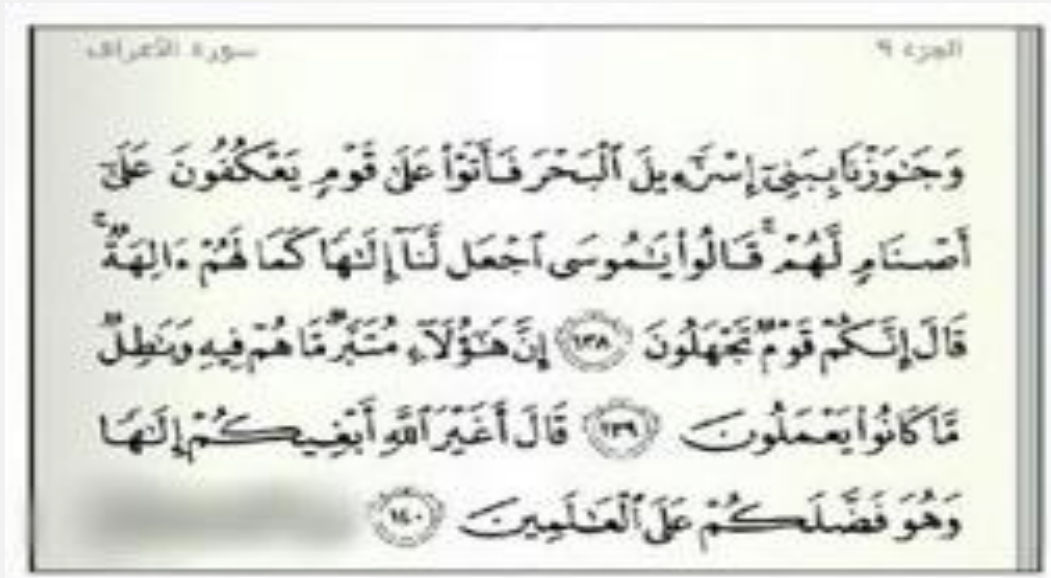 الجزء ٩ سورة الأعراف
وَجَٰوَزْنَا بِبَنِىٓ إِسْرَٰٓءِيلَ ٱلْبَحْرَ فَأَتَوْا۟ عَلَىٰ قَوْمٍ يَعْكُفُونَ عَلَىٰٓ
أَصْنَامٍ لَّهُمْ ۚ قَالُوا۟ يَٰمُوسَى ٱجْعَل لَّنَآ إِلَٰهًا كَمَا لَهُمْ ءَالِهَةٌ ۚ
قَالَ إِنَّكُمْ قَوْمٌ تَجْهَلُونَ ١٣٨ إِنَّ هَٰٓؤُلَآءِ مُتَبَّرٌ مَّا هُمْ فِيهِ وَبَٰطِلٌ
مَّا كَانُوا۟ يَعْمَلُونَ ١٣٩ قَالَ أَغَيْرَ ٱللَّهِ أَبْغِيكُمْ إِلَٰهًا
وَهُوَ فَضَّلَكُمْ عَلَى ٱلْعَٰلَمِينَ ١٤٠